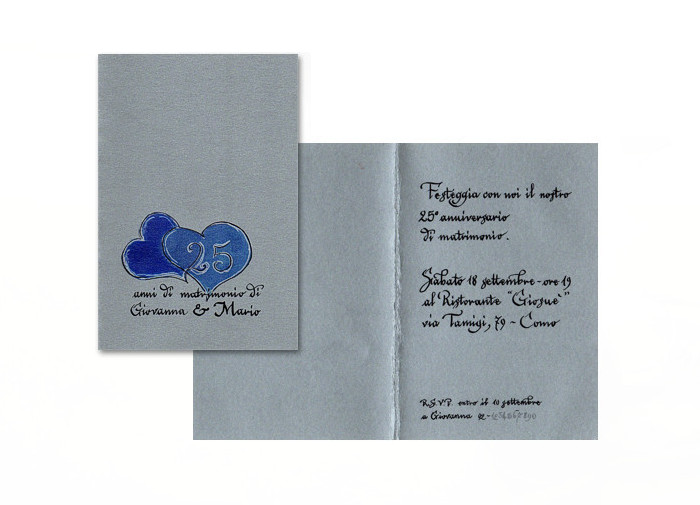 25
anni di matrimonio di
Giovanna & Mario
Festeggia con noi il nostro
25° anniversario
di matrimonio.
Sabato 18 settembre - ore 19
al Ristorante "Giosuè"
via Tamigi, 79 - Como
R.S.V.P. entro il 10 settembre
a Giovanna